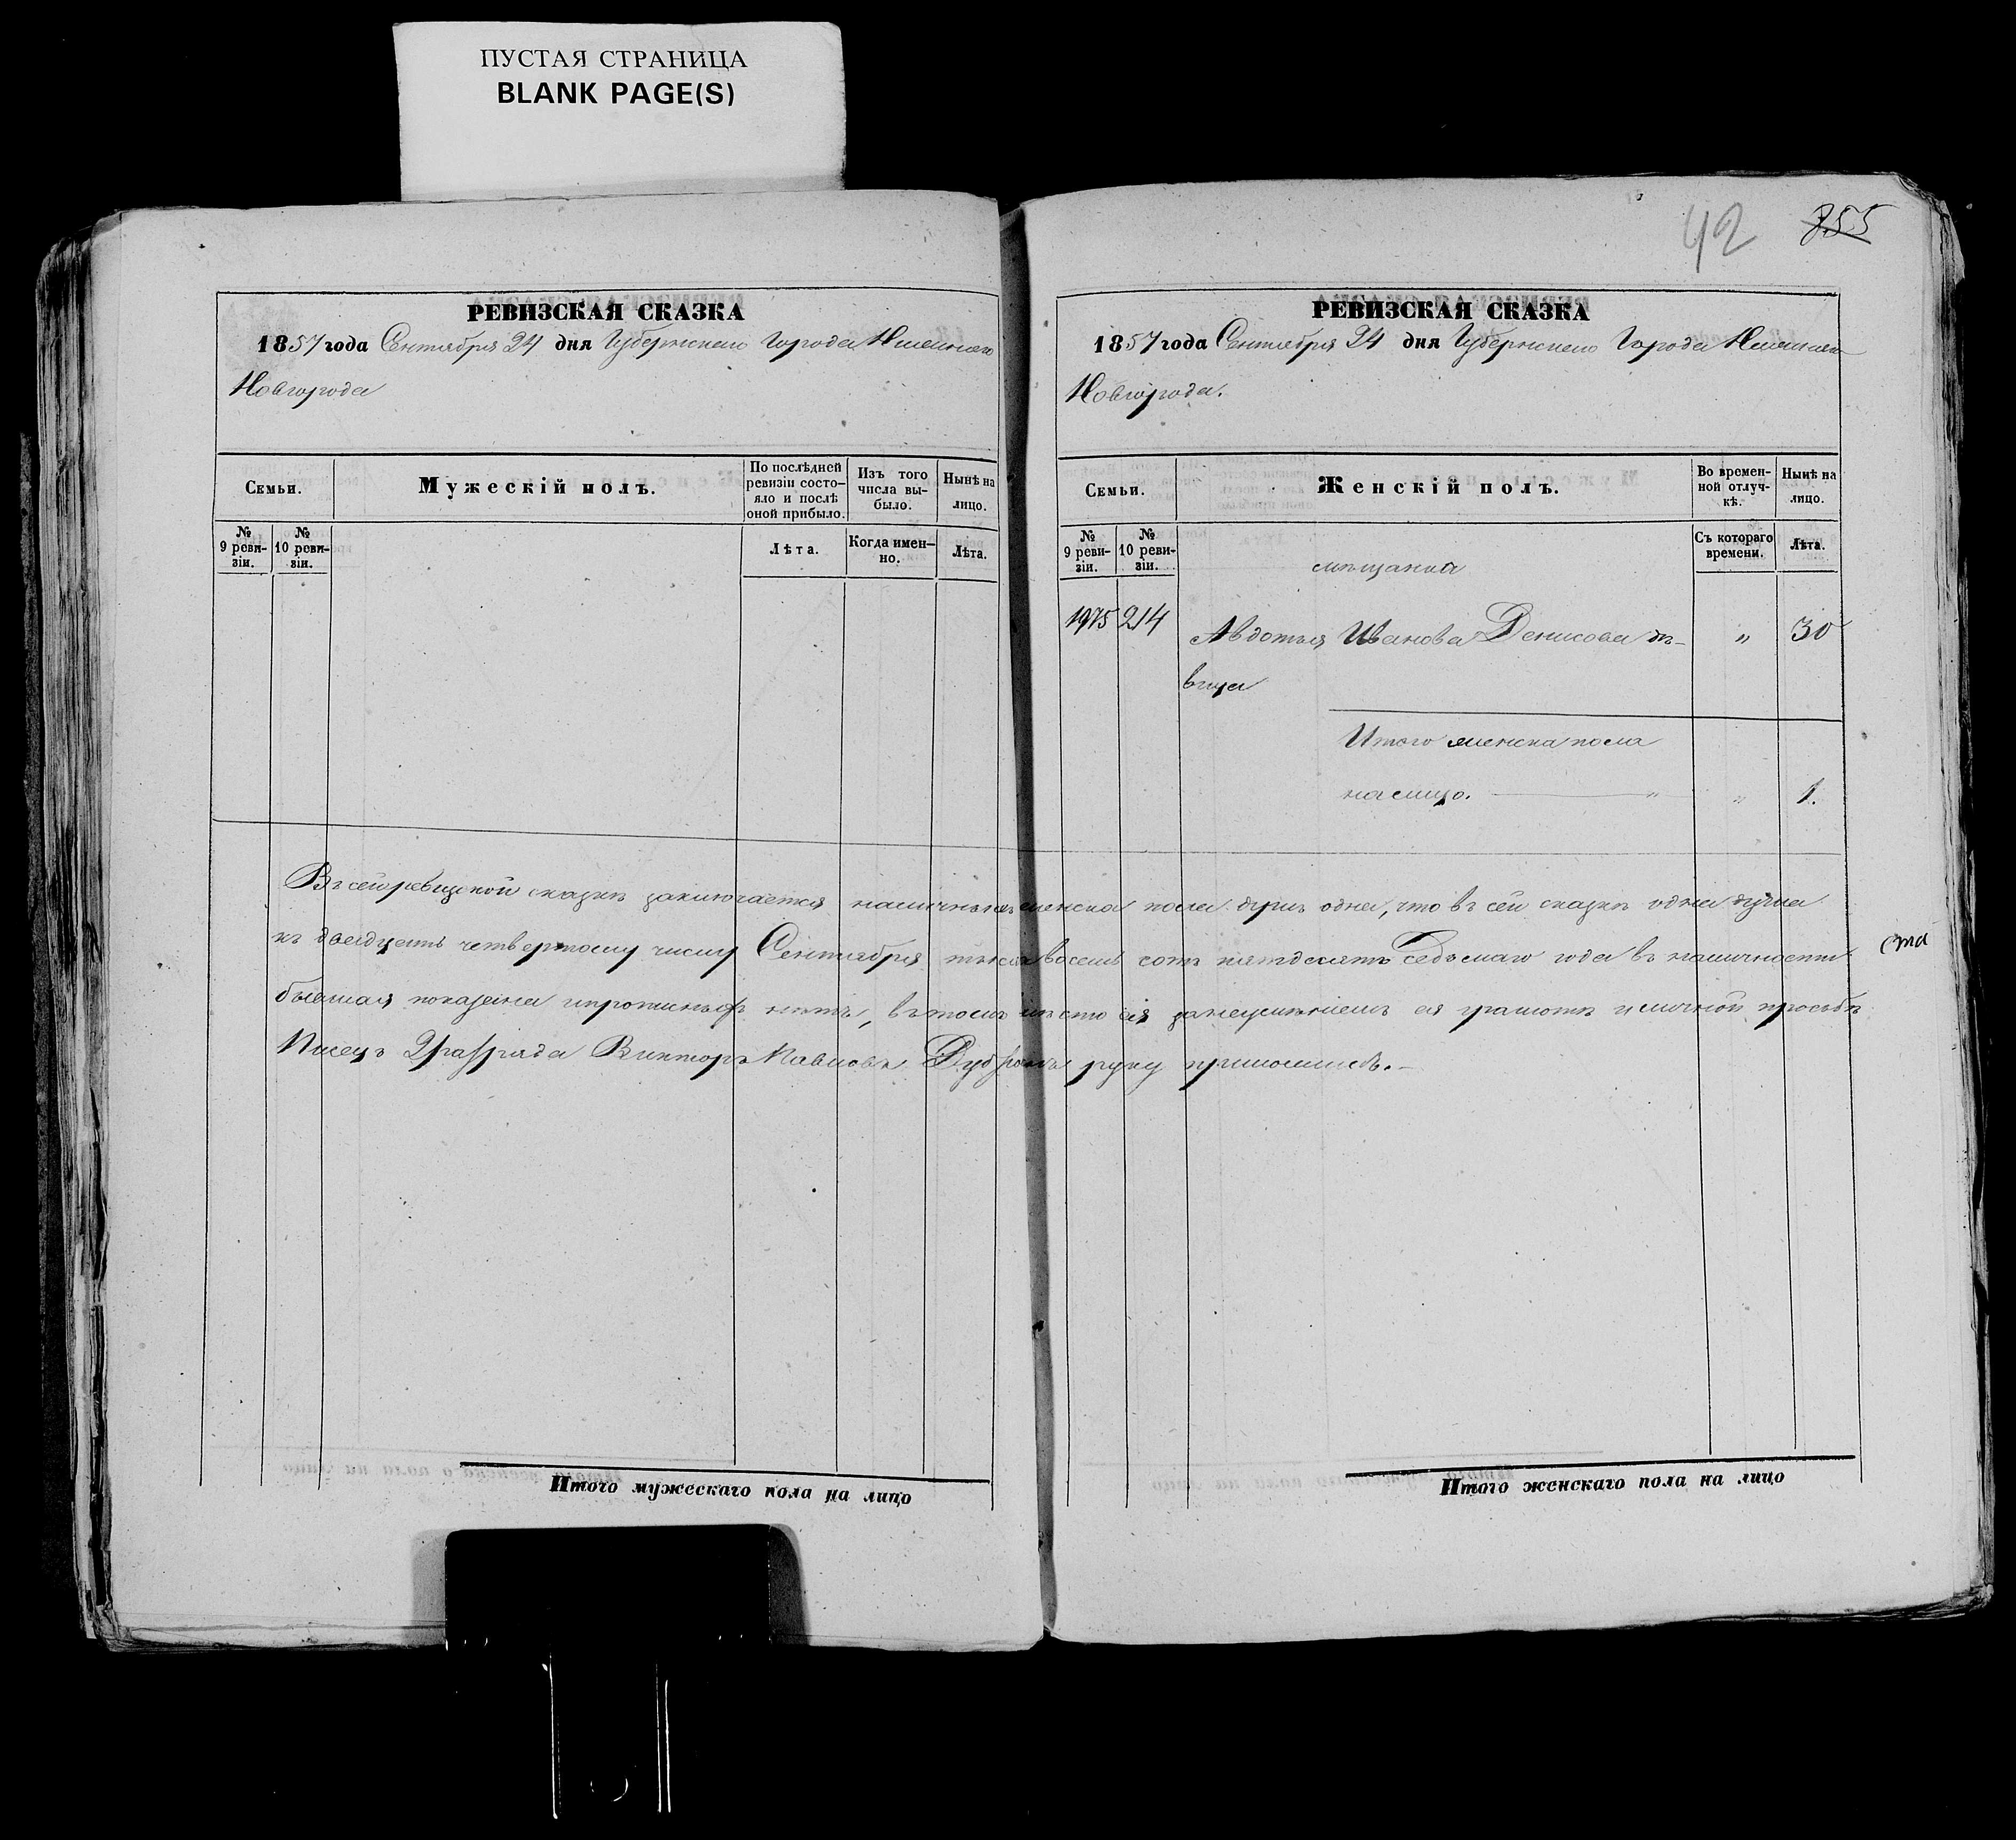 ПУСТАЯ СТРАНИЦА
BLANK PAGE(S)
РЕВИЗСКАЯ СКАЗКА
1857 года Сентября 24 дня Губернскаго Города Нижняго
Новгорода
Семьи.
Мужескій полъ.
По послѣдней
ревизіи состо-
яло и послѣ
оной прибыло.
Изъ того
числа вы-
было.
Нынѣ на
лицо.
№
9 реви-
зіи.
№
10 реви-
зіи.
Лѣта.
Когда имен-
но.
Лѣта.
42 855
РЕВИЗСКАЯ СКАЗКА
1857 года Сентября 24 дня Губернскаго Города Нижняго
Новгорода.
Семьи.
Женскій полъ.
Во времен-
ной отлуч-
кѣ.
Нынѣ на
лицо.
№
9 реви-
зіи.
№
10 реви-
зіи.
Съ котораго
времени.
Лѣта.
мѣщанка
1975 214 Авдотья Иванова Денисова дѣ- " 30
вица
Итого женска пола
налицо. " " 1.
Въ сей ревизской сказкѣ заключается наличныхъ женска пола душъ одна, что въ сей сказкѣ одна душа
къ двадцать четвертому числу Сентября тысяча восемь сотъ пятдесятъ Седьмаго года въ наличности ста
бывшая показана ипрописныхъ нѣтъ, въ томъ вмѣсто ея занеумѣніемъ ея грамотѣ и личной просьбѣ
Писецъ 2 разряда Викторъ Павловъ руку приложилъ.
Итого мужескаго пола на лицо
Итого женскаго пола на лицо